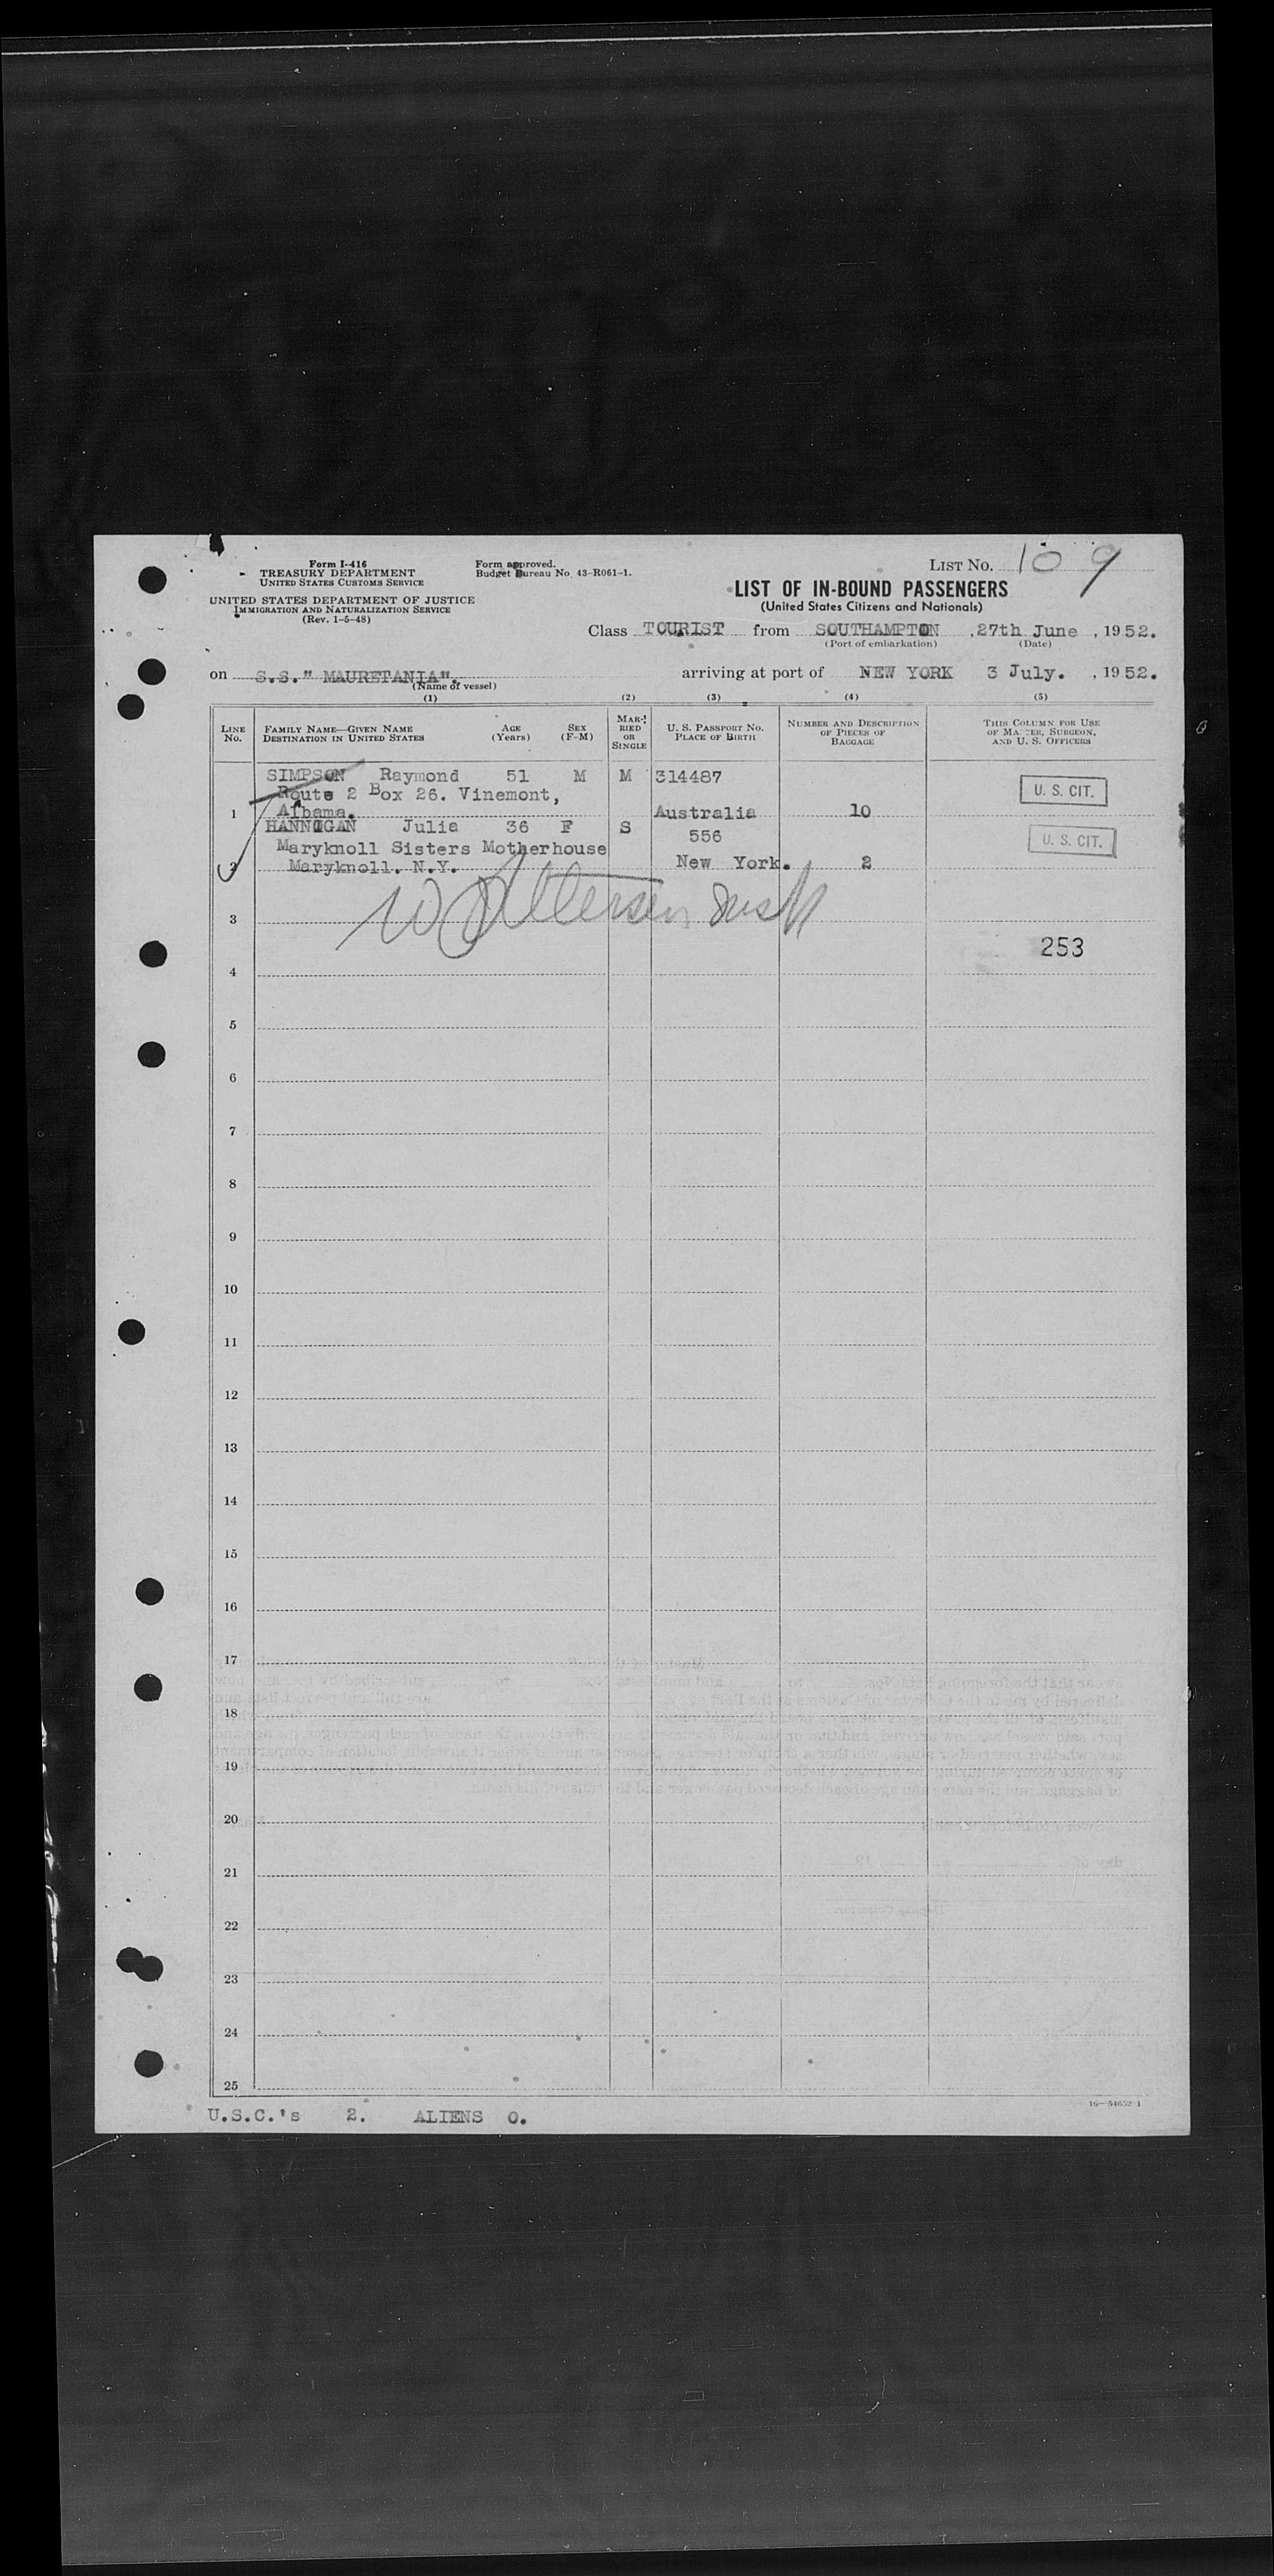 Form I-416
TREASURY DEPARTMENT
UNITED STATES CUSTOMS SERVICE
Form approved.
Budget Bureau No. 43-R061-1.
LIST NO. 109
UNITED STATES DEPARTMENT OF JUSTICE
IMMIGRATION AND NATURALIZATION SERVICE
(Rev. 1-5-48)
LIST OF IN-BOUND PASSENGERS
(United States Citizens and Nationals)
Class TOURIST from SOUTHAMPTON , 27th June , 1952.
(Port of embarkation) (Date)
on S.S." MAURETANIA". arriving at port of NEW YORK 3 July. , 1952.
(Name of vessel)
(1) (2) (3) (4) (5)
LINE No. FAMILY NAME—GIVEN NAME DESTINATION IN UNITED STATES AGE (Years) SEX (F-M) MARRIED OR SINGLE U. S. PASSPORT NO. PLACE OF BIRTH NUMBER AND DESCRIPTION OF PIECES OF BAGGAGE THIS COLUMN FOR USE OF MASTER, SURGEON, AND U. S. OFFICERS
SIMPSON Raymond 51 M M 314487
Route 2 Box 26. Vinemont, U. S. CIT.
1 Albama. Australia 10
HANNIGAN Julia 36 F S 556
Maryknoll Sisters Motherhouse U. S. CIT.
2 Maryknoll. N.Y. New York. 2
3
253
4
5
6
7
8
9
10
11
12
13
14
15
16
17
18
19
20
21
22
23
24
25
U.S.C.'s 2. ALIENS 0.
16—54652-1